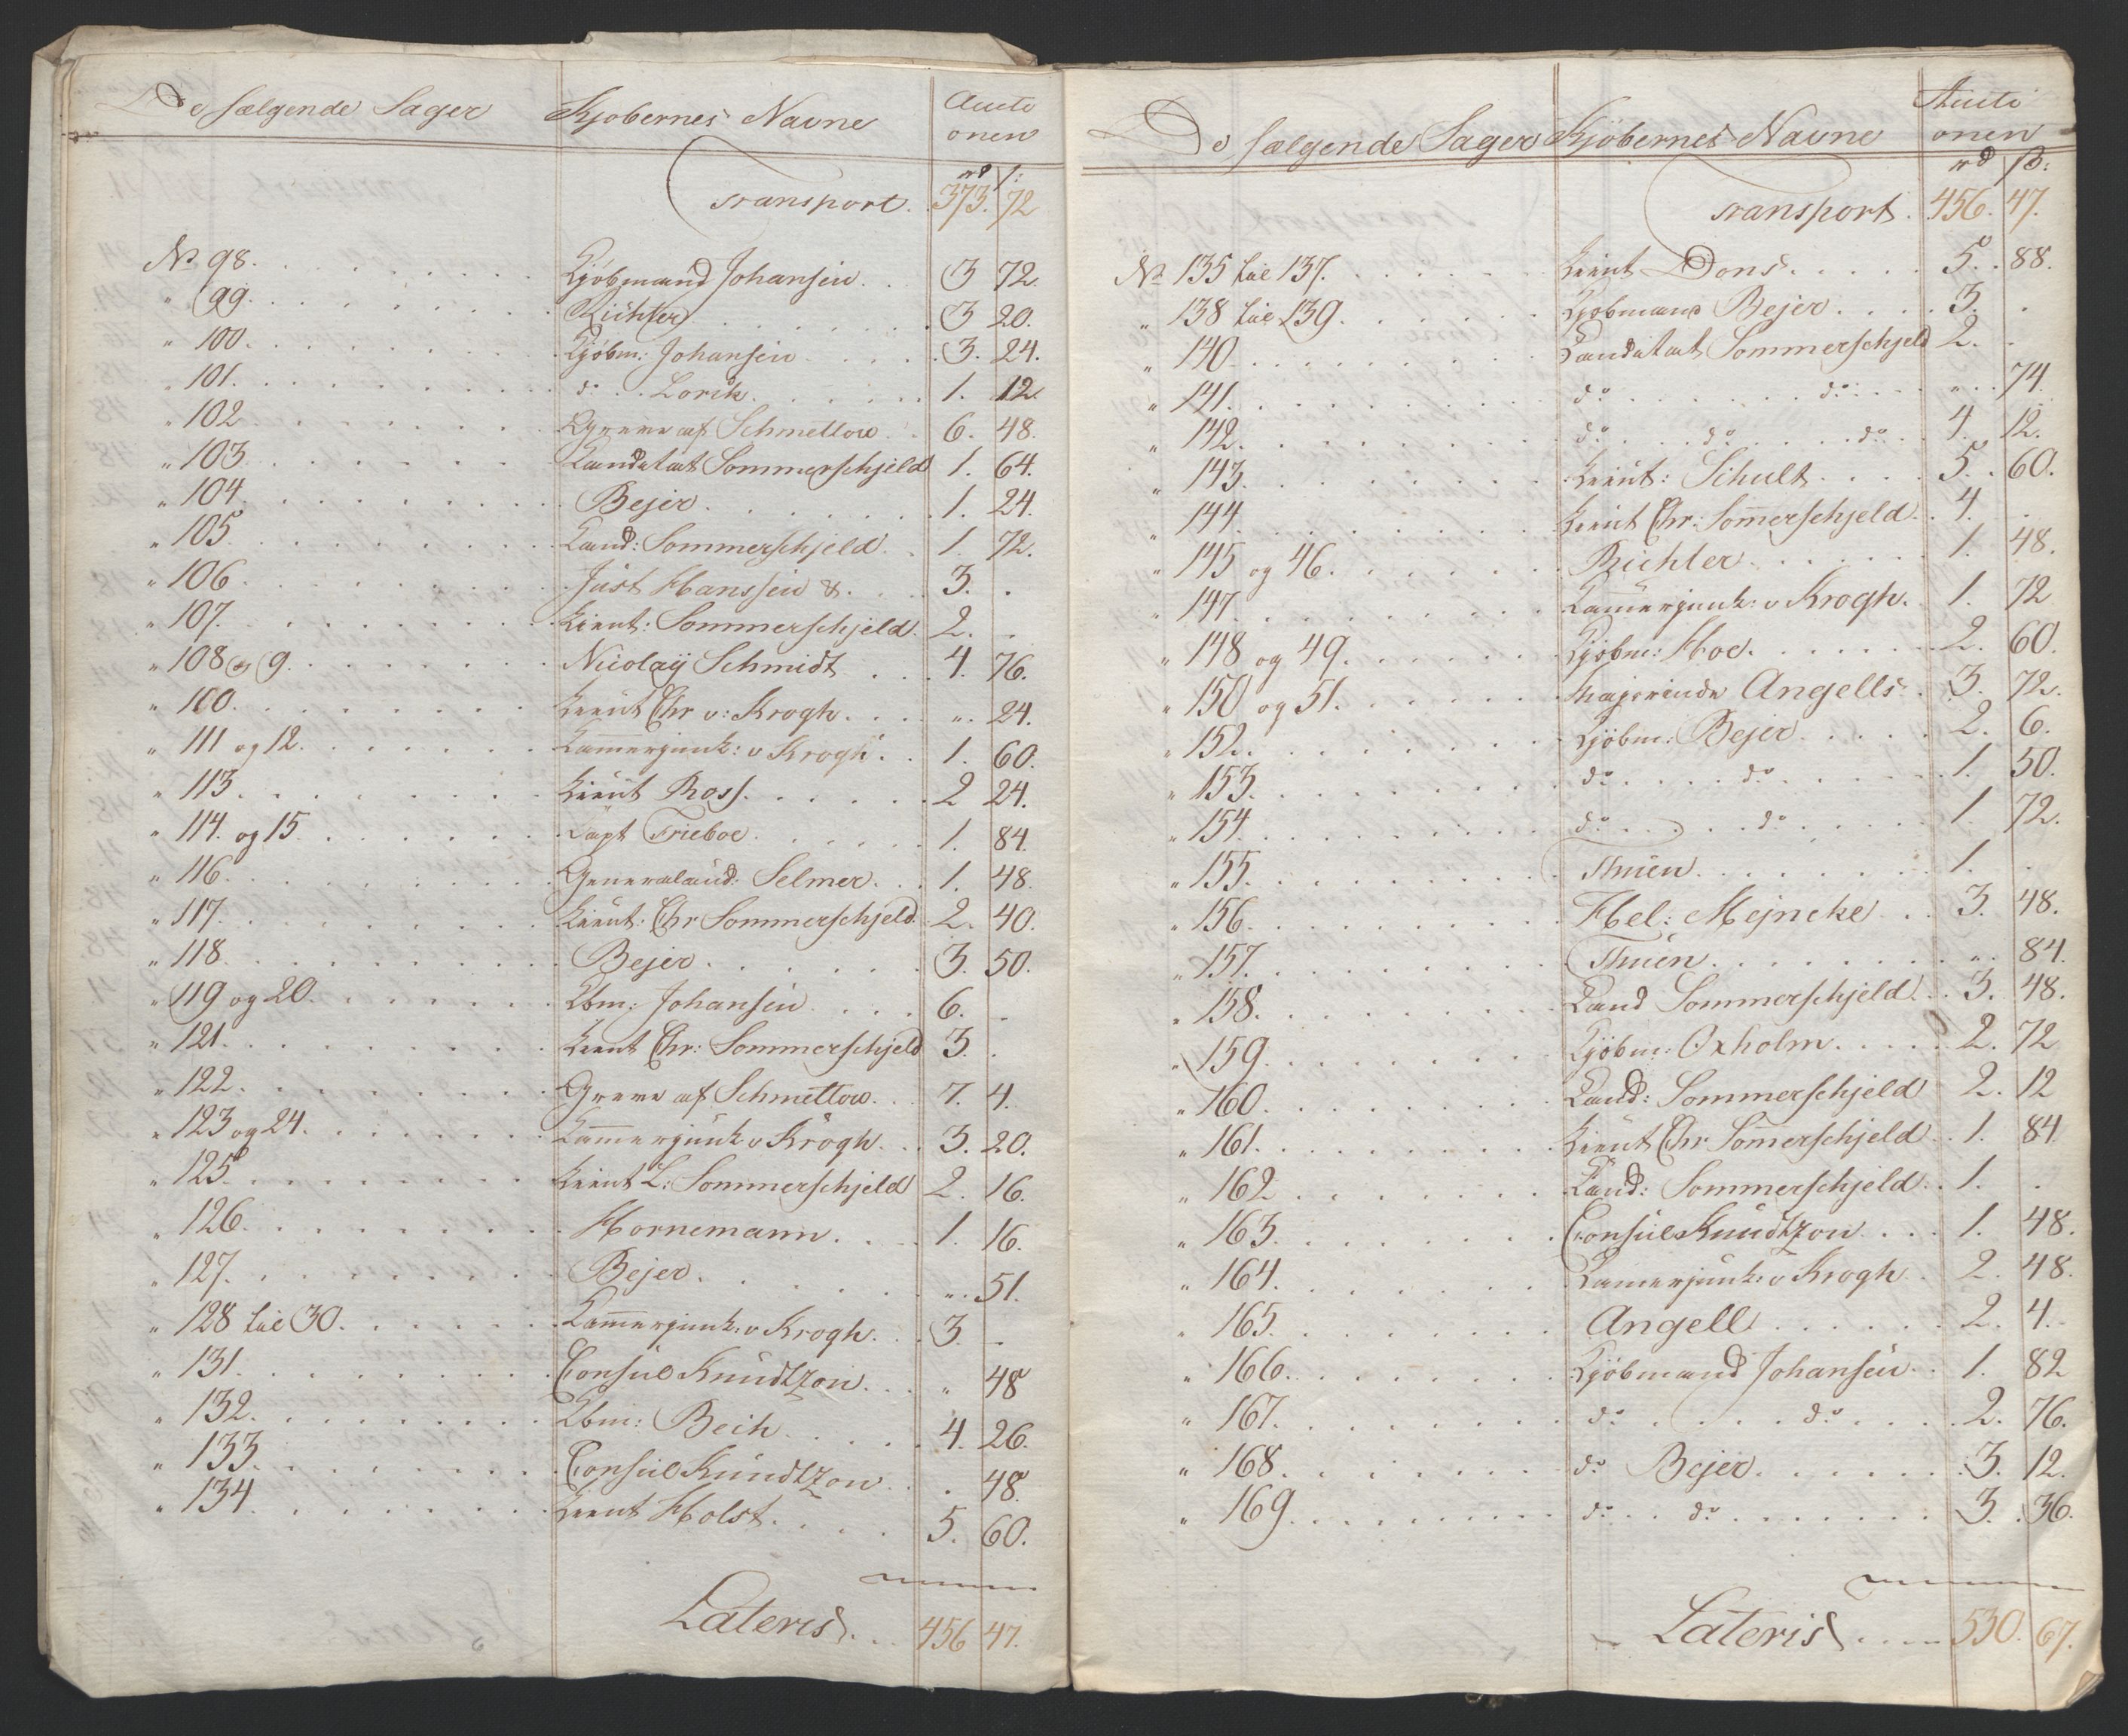 De sælgende Sager Kjøbernes Navne Aucti
onen
rd s:
Transport. 373. 72
No 98. Kjöbmand Johansen. 3 72.
" 99. Richter 3 20.
" 100. Kjöbm: Johansen 3. 24.
" 101. do Lorck. 1. 12.
" 102. Greve af Schmettow. 6. 48.
" 103. Candidat Sommerschjeld 1. 64.
" 104. Bejer. 1. 24.
" 105. Cand: Sommerschjeld. 1. 72.
" 106. Just Hanssen &. 3. .
" 107. Lieut: Sommerschjeld. 2. .
" 108 og 9. Nicolaÿ Schmidt 4. 76.
" 100. Lieut Chr v: Krogh. " 24.
" 111 og 12. Kammerjunk: v Krogh. 1. 60.
" 113. Lieut Ross. 2 24.
" 114. og 15. Capt Trieboe. 1. 84.
" 116. Generalaud: Selmer. 1. 48.
" 117. Lieut: Chr Sommerschjeld. 2. 40.
" 118. Bejer. 3. 50.
" 119 og 20. Kbm: Johansen 6. .
" 121. Lieut Chr: Sommerschjeld 3. .
" 122. Greve af Schmettow. 7. 4.
" 123 og 24. Kammerjunk v Krogh. 3. 20.
" 125. Lieut L: Sommerschjeld 2. 16.
" 126. Hornemann. 1. 16.
" 127. Bejer. " 51.
" 128 til 30. Kammerjunk: v Krogh. 3. .
" 131. Consul Knudtzon. " 48
" 132. Kbm: Bech 4. 26.
" 133. Consul Knudtzon . 48.
" 134. Lieut Holst. 5. 60.
Lateris. 456 47.
De sælgende Sager Kjöbernes Navne Aucti
onen
rd s:
Transport. 456. 47.
No 135 til 137. Lieut Dons. 5. 88.
" 138 til 139. Kjöbmand Bejer. 3. .
" 140. Candidat Sommerschjeld 2. .
" 141. do do " 74.
" 142. do do do 4. 12.
" 143. Lieut: Schult. 5. 60.
" 144. Lieut Chr: Somerschjeld. 4. .
" 145 og 46. Richter. 1. 48.
" 147. Kammerjunk: v Krogh. 1. 72
" 148 og 49. Kjöbm: Hoe. 2. 60.
" 150 og 51. Majorinde Angells. 3. 72.
" 152. Kjöbm: Bejer. 2. 6.
" 153. do do 1. 50.
" 154. do do 1. 72.
" 155. Thuen. 1. .
" 156. Hel: Mejncke 3. 48.
" 157. Thuen. " 84.
" 158. Cand Sommerschjeld. 3. 48.
" 159. Kjöbm: Oxholm. 2. 72
" 160. Cand: Sommerschjeld 2. 12
" 161. Lieut Chr Somerschjeld 1. 84
" 162 Cand: Sommerschjeld 1. .
" 163. Consul Knudtzon 1. 48.
" 164. Kamerjunk: v Krogh 2. 48.
" 165. Angell 2. 4.
" 166. Kjöbmand Johansen 1. 82
" 167. do do 2. 76.
" 168. do Bejer. 3. 12.
" 169. do do 3. 36.
Lateris 530. 67.